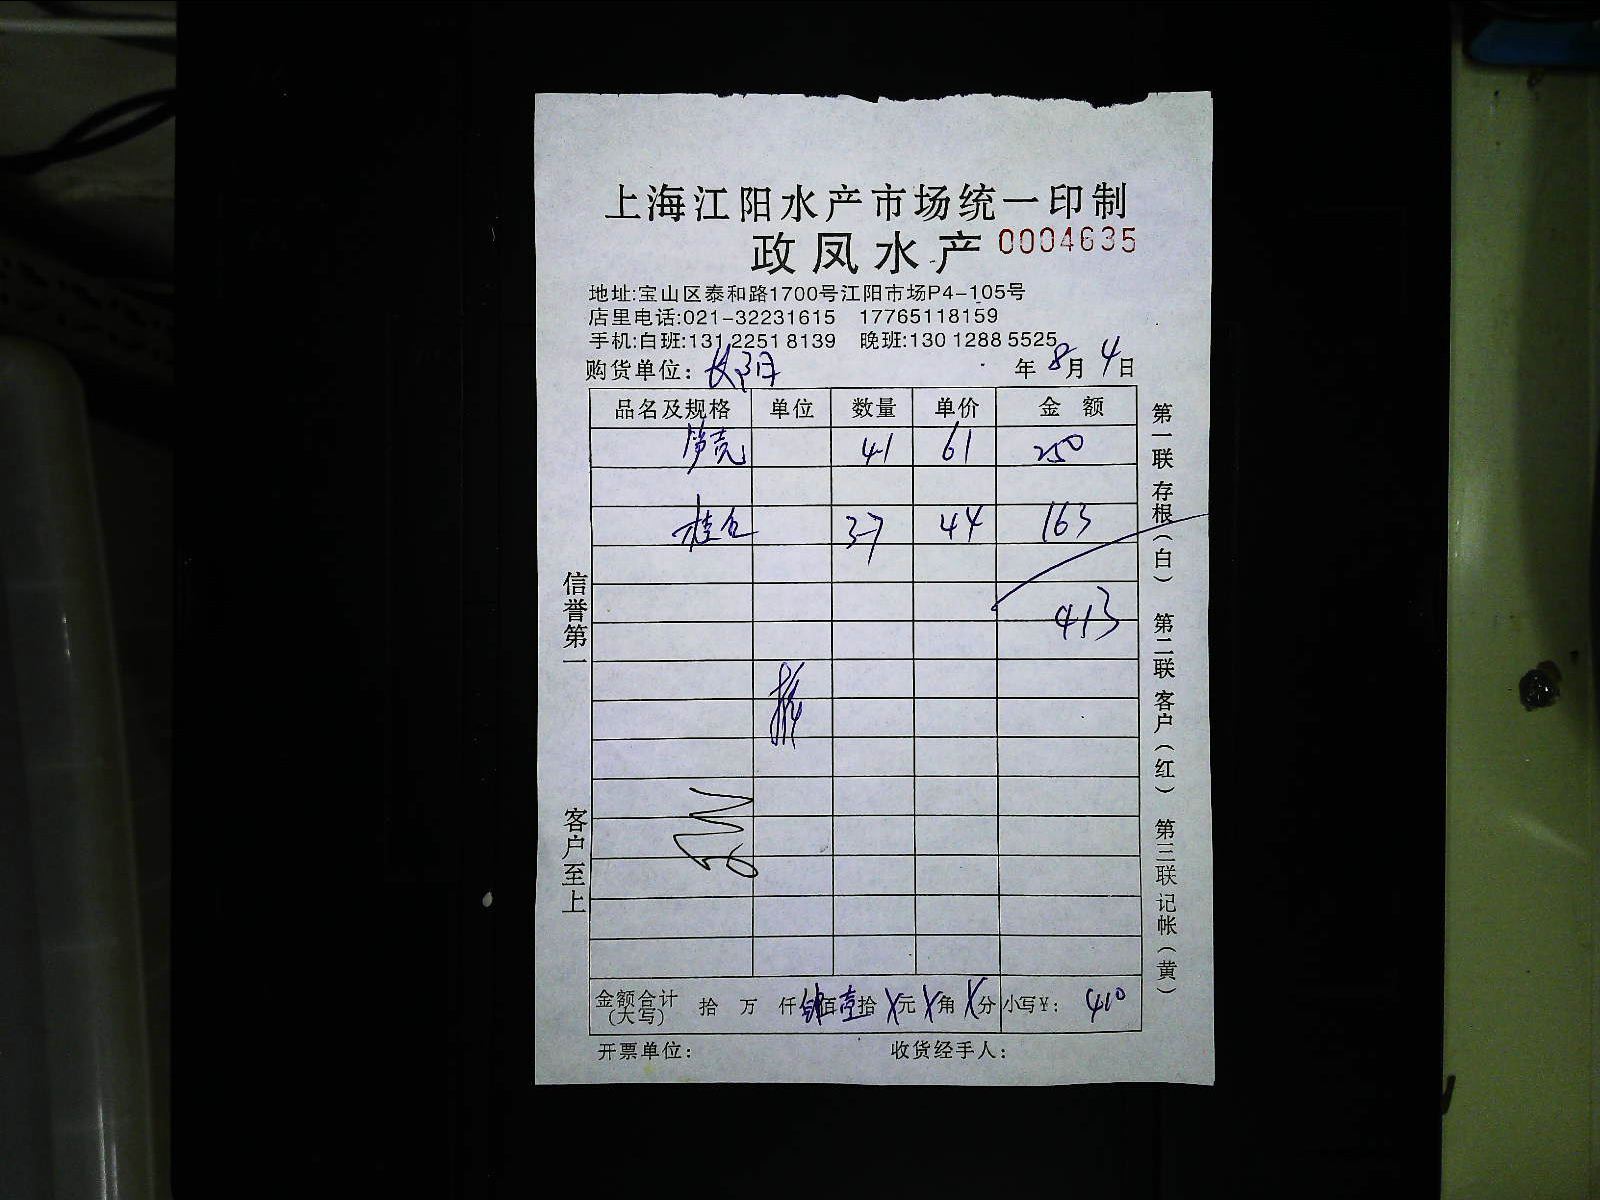 上海江阳水产市场统一印制
政凤水产 0004635
地址:宝山区泰和路1700号江阳市场P4-105号
店里电话:021-32231615 17765118159
手机:白班:131 2251 8139 晚班:130 1288 5525
购货单位: 年 8 月 4 日
品名及规格 单位 数量 单价 金额
笋壳 41 61 250
桂 37 44 163
413
金额合计(大写) 拾 万 仟 肆佰 壹拾 X元 X角 X分 小写¥: 410
开票单位: 收货经手人:
信誉第一 客户至上
第一联 存根(白) 第二联 客户(红) 第三联 记帐(黄)